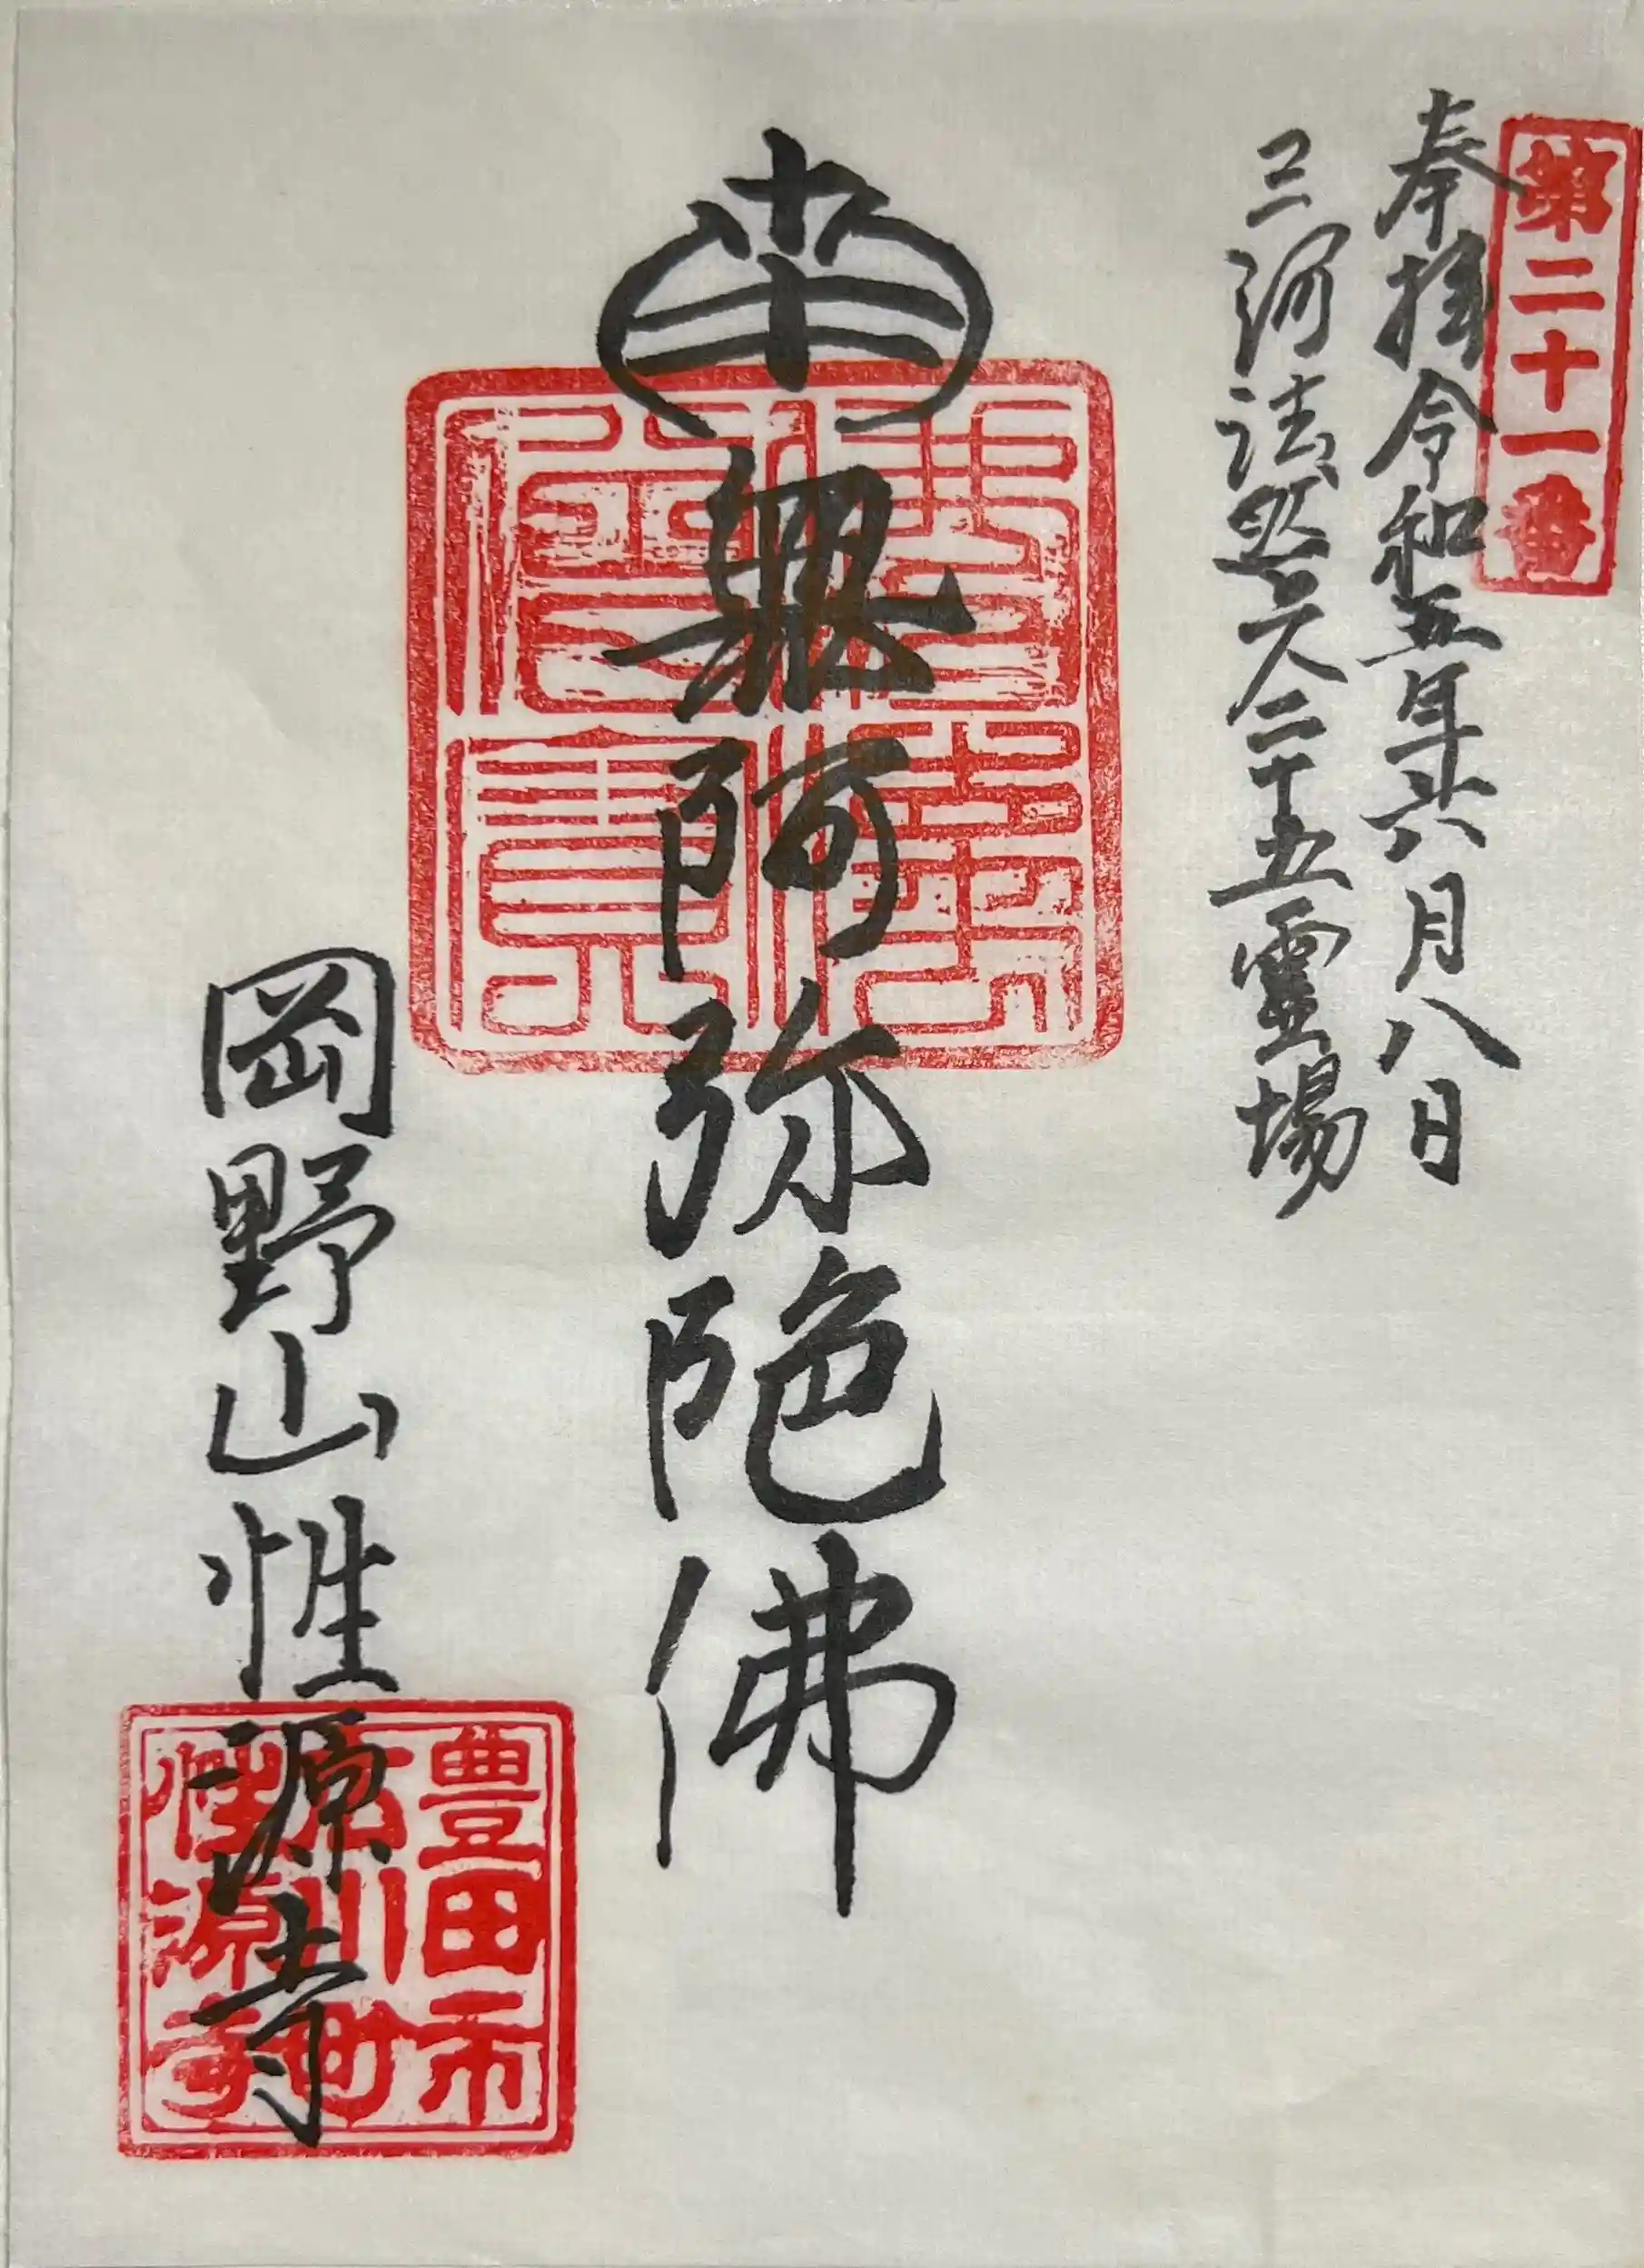 第二十一番
奉拝 令和五年六月八日
三河法然上人二十五霊場
南無阿弥陀佛
岡野山性源寺
豊田市
古川町
性源寺